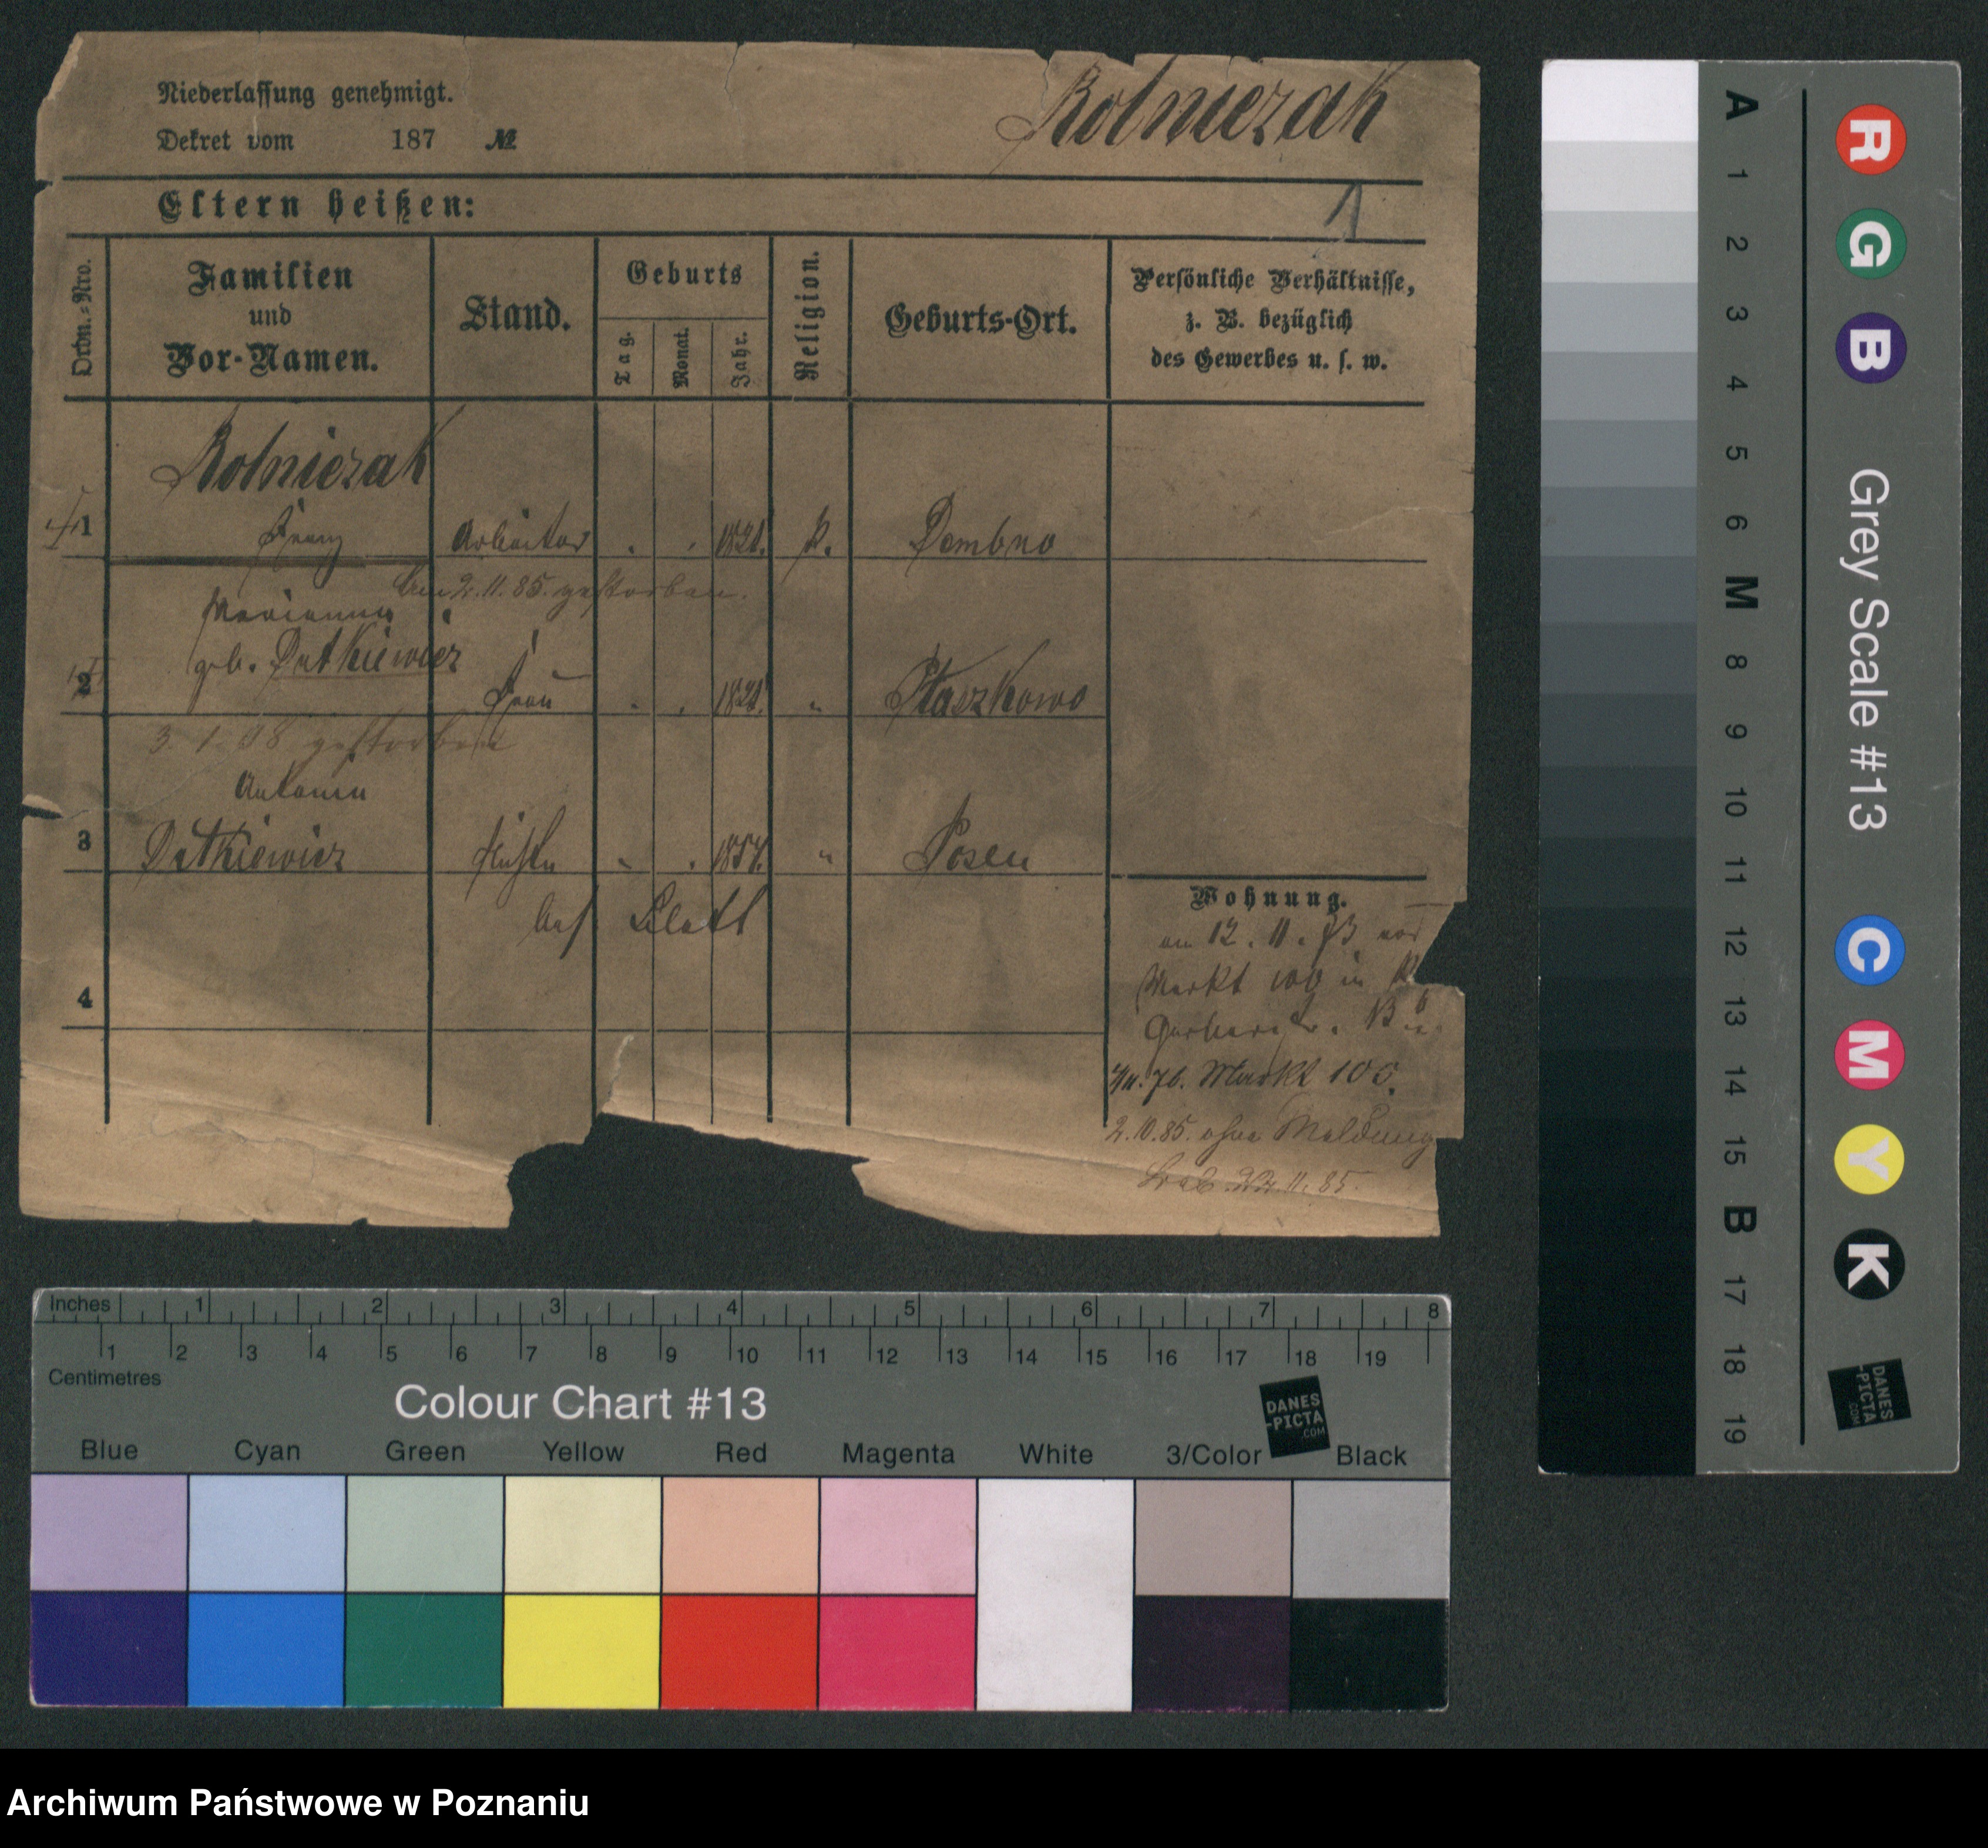 Niederlassung genehmigt.
Dekret vom 187 №
Rolniczak
Eltern heißen:
1
Ordn.-Nro.
Familien
und
Vor-Namen.
Stand.
Geburts
Tag.
Monat.
Jahr.
Religion.
Geburts-Ort.
Persönliche Verhältnisse,
z. B. bezüglich
des Gewerbes u. s. w.
Rolniezak
1 Franz Arbeiter . . 1821. k. Dombno
den 2.11.85. gestorben.
Marianna
geb. Datkiewicz
2 Frau . . 1821. " Ptaszkowo
3. 1. 98 gestorben
Antonin
3 Datkiewicz " . 1857. " Posen
4
Wohnung.
am 12. 11. 73 von
Markt 100 in
Gerber
4/11.76. Markt 100.
2.10.85. ohne Meldung
22.11.85.
A 1 2 3 4 5 6 M 8 9 10 11 12 13 14 15 B 17 18 19
R G B
Grey Scale #13
C M Y K
DANES
-PICTA
.COM
Inches 1 2 3 4 5 6 7 8
1 2 3 4 5 6 7 8 9 10 11 12 13 14 15 16 17 18 19
Centimetres
Colour Chart #13
DANES
-PICTA
.COM
Blue Cyan Green Yellow Red Magenta White 3/Color Black
Archiwum Państwowe w Poznaniu